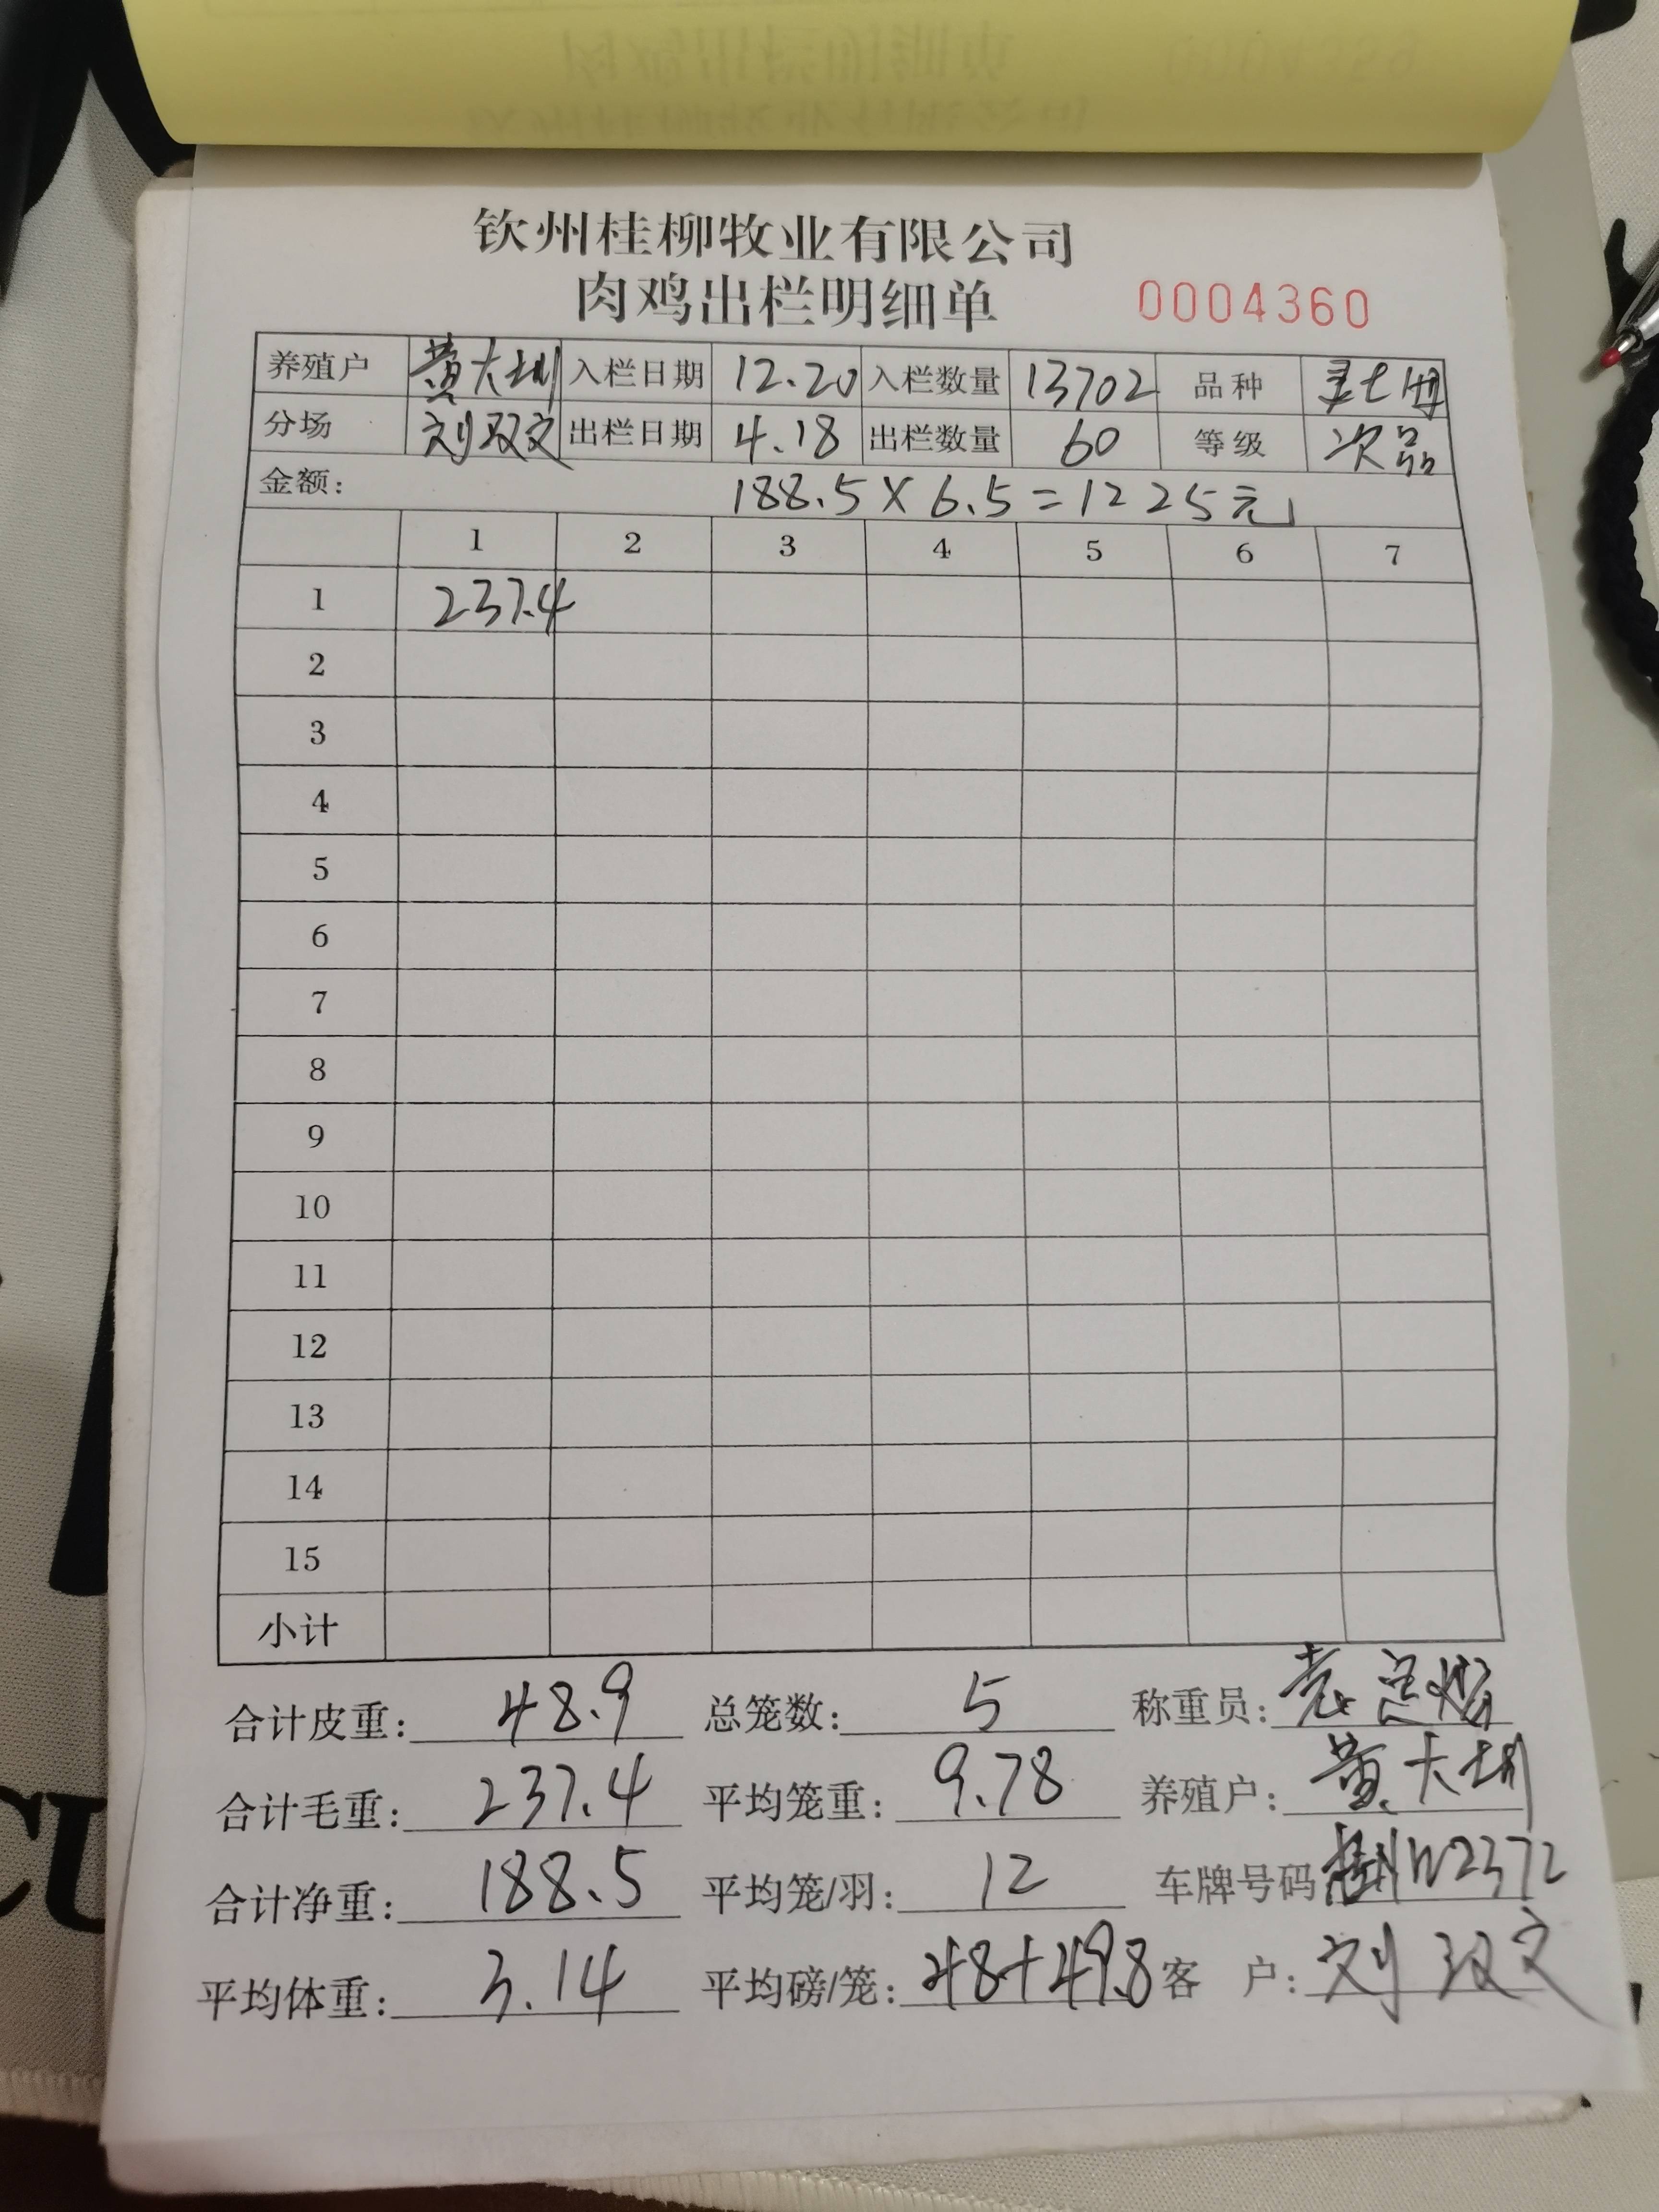 钦州桂柳牧业有限公司
肉鸡出栏明细单 0004360
养殖户 黄大圳 入栏日期 12.20 入栏数量 13702 品种
分场 刘双文 出栏日期 4.18 出栏数量 60 等级 次品
金额: 188.5×6.5=1225元
1 2 3 4 5 6 7
1 237.4
2
3
4
5
6
7
8
9
10
11
12
13
14
15
小计
合计皮重: 48.9 总笼数: 5 称重员:
合计毛重: 237.4 平均笼重: 9.78 养殖户: 黄大圳
合计净重: 188.5 平均笼/羽: 12 车牌号码 桂N W2372
平均体重: 3.14 平均磅/笼: 客 户: 刘双文